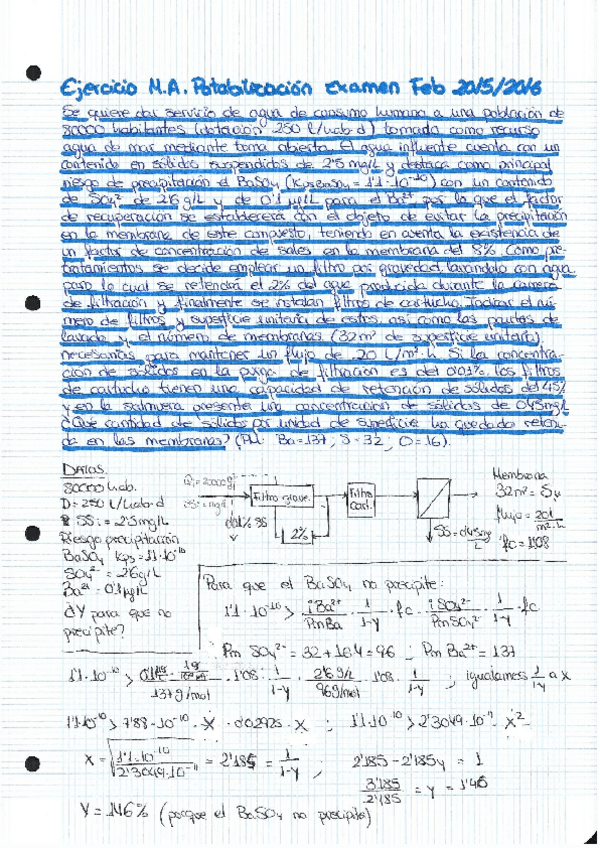 Ejercicio M.A. Potabilización examen Feb 2015/2016
Se quiere dar servicio de agua de consumo humano a una población de
80000 habitantes (dotación 250 L/hab·d) tomando como recurso
agua de mar mediante toma abierta. El agua influente cuenta con un
contenido en sólidos suspendidos de 2'5 mg/L y destaca como principal
riesgo de precipitación el BaSO4 (KpsBaSO4 = 1'1·10^-10) con un contenido
de SO4^2- de 2'6 g/L y de 0'1 µg/L para el Ba^2+ por lo que el factor
de recuperación se establecerá con el objeto de evitar la precipitación
en la membrana de este compuesto, teniendo en cuenta la existencia de
un factor de concentración de sales en la membrana del 8%. Como pre-
tratamientos se decide emplear un filtro por gravedad, lavándolo con agua
para lo cual se retendrá el 2% del agua producida durante la carrera
de filtración y finalmente se instalan filtros de cartucho. Indicar el nú-
mero de filtros y superficie unitaria de estos así como las pautas de
lavado y el número de membranas (32 m² de superficie unitaria)
necesarias para mantener un flujo de 20 L/m²·h. Si la concentra-
ción de sólidos en la purga de filtración es del 0'01%, los filtros
de cartucho tienen una capacidad de retención de sólidos del 45%
y en la salmuera presenta una concentración de sólidos de 0'45 mg/L
¿Qué cantidad de sólidos por unidad de superficie ha quedado reteni-
da en las membranas? (PM: Ba=137; S=32; O=16).
DATOS
80000 hab.
D = 250 L/hab·d
SS: = 2'5 mg/L
Riesgo precipitación
BaSO4 Kps = 1'1·10^-10
SO4^2- = 2'6 g/L
Ba^2+ = 0'1 µg/L
¿Y para que no
precipite?
Filtro grave.
2%
Filtro
cart.
SS = 0'45 mg/L
Membrana
32 m² = Su
flujo = 20 L/m²·h
fc = 1'08
Para que el BaSO4 no precipite:
1'1·10^-10 > iBa^2+/PmBa · 1/1-y · fc · iSO4^2-/PmSO4^2- · 1/1-y · fc
Pm SO4^2- = 32 + 16·4 = 96 ; Pm Ba^2+ = 137
137 g/mol · 1'08 · 1/1-y · 2'6 g/L / 96 g/mol · 1'08 · 1/1-y ; igualamos 1/1-y a x
1'1·10^-10 > 7'88·10^-10 · X · 0'0292 · X ; 1'1·10^-10 > 2'3049·10^-11 · x²
x = √(1'1·10^-10 / 2'3049·10^-11) = 2'185 = 1/1-y ; 2'185 - 2'185y = 1
3'185/2'185 = y = 1'46
Y = 146% (porque el BaSO4 no precipite)